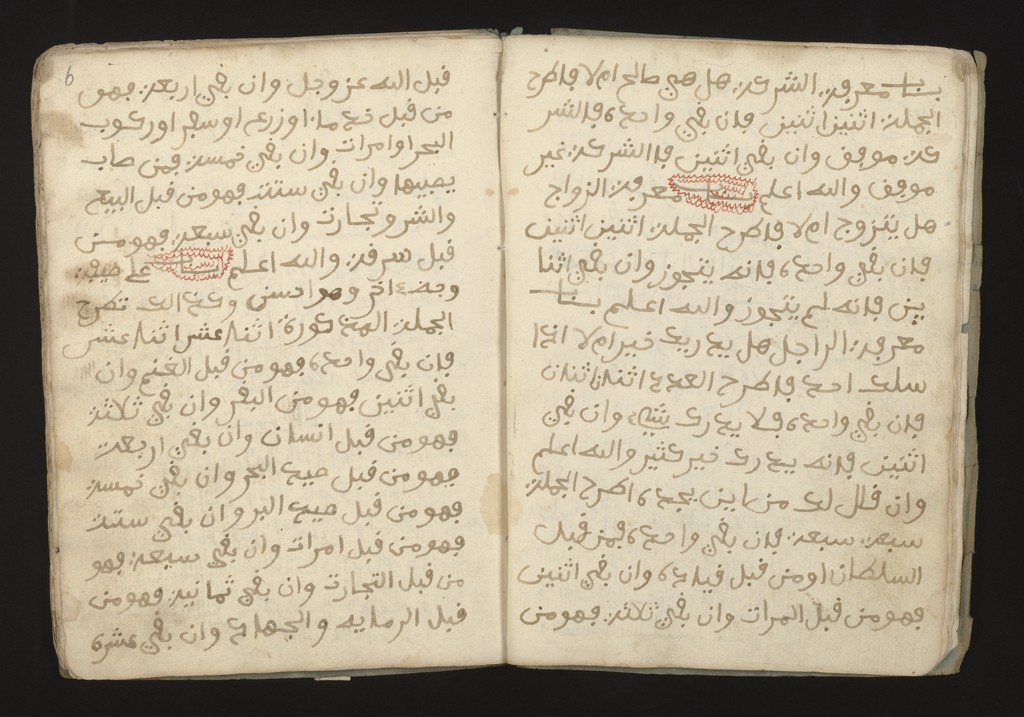 باب معرفة الشركة هل هي صالح ام لا فاطرح
الجملة اثنين اثنين فان بقي واحدة فالشر
كة موفق وان بقي اثنين فالشركة غير
موفق والله اعلم باب معرفة الزواج
هل يتزوج ام لا فاطرح الجملة اثنين اثنين
فان بقي واحدة فانه يتجوز وان بقي اثنا
ين فانه لم يتجوز والله اعلم باب
معرفة الراجل هل يدرك خير ام لا اذا
سلك احد فاطرح العدد اثنان اثنان
فان بقي واحدة فلا يدرك شيء وان بقي
اثنين فانه يدرك خير كثير والله اعلم
وان قال لك من اين يجده اطرح الجملة
سبعة سبعة فان بقي واحدة فمن قبل
السلطان او من قبل وان بقي اثنين
فهو من قبل المرات وان بقي ثلاثة فهو من
6
قبل الله عز وجل وان بقي اربعة فهو
من قبل او زرع او سفر او ركوب
البحر او امرات وان بقي خمسة فمن
يصيبها وان بقي ستت فهو من قبل البيع
والشر وتجارت وان بقي سبعة فهو من
قبل سرقة والله اعلم باب على صيفة
وجه اخر وهو احسن وذلك تطرح
الجملة المذكورة اثنا عشر اثنا عشر
فان بقي واحدة فهو من قبل الغنم وان
بقي اثنين فهو من البقر وان بقي ثلاثة
فهو من قبل انسان وان بقي اربعة
فهو من قبل صيد البحر وان بقي خمسة
فهو من قبل صيد البر وان بقي ستت
فهو من قبل امرات وان بقي سبعة فهو
من قبل التجارت وان بقي ثمانية فهو من
قبل الرمايه والجهاد وان بقي عشرة